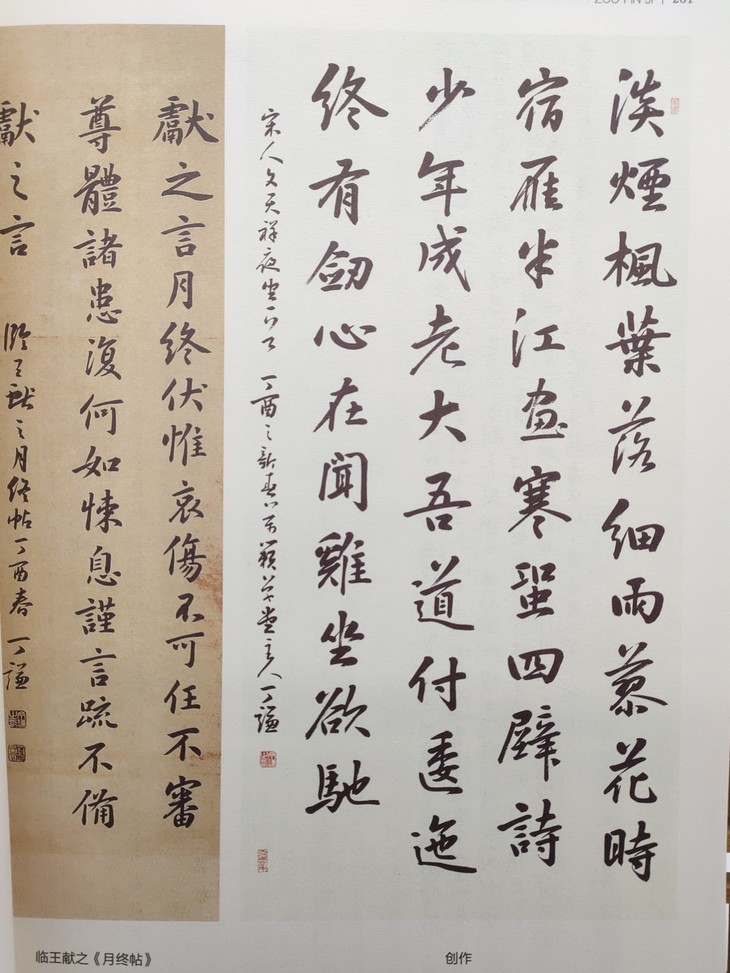 淡煙楓葉落細雨蓼花時
宿雁半江畫寒蛩四壁詩
少年成老大吾道付逶迤
終有劒心在聞雞坐欲馳
宋人文天祥夜坐一首 丁酉之新春 草堂主人丁謙
獻之言月終伏惟哀傷不可任不審
尊體諸患復何如悚息謹言疏不備
獻之言 臨王獻之月終帖丁酉春丁謙
临王献之《月终帖》
创作